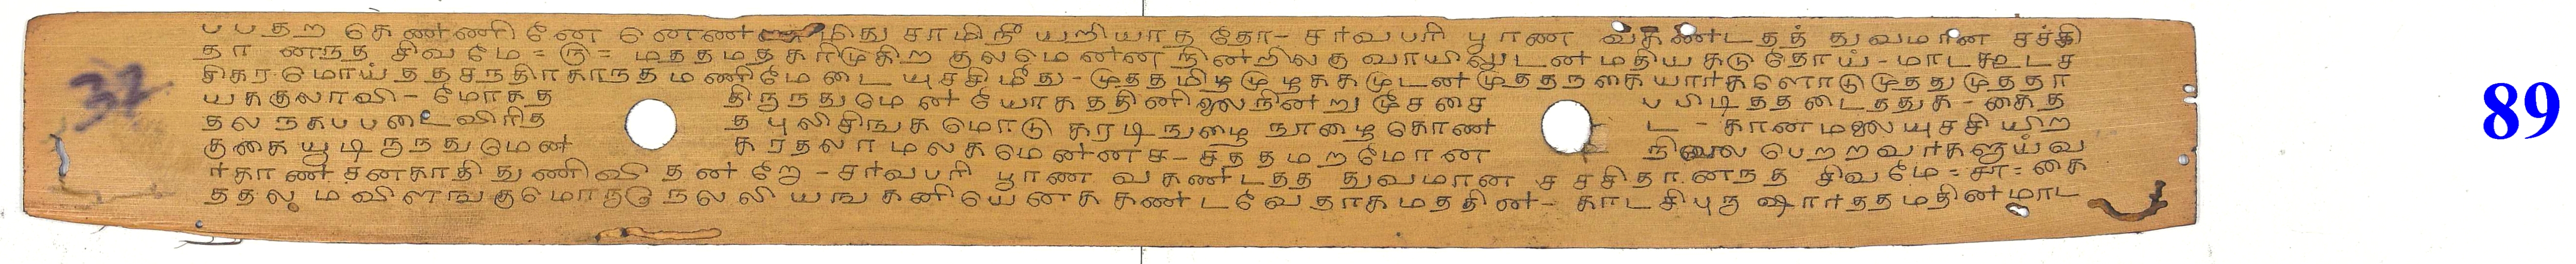 பபதற கெணணினே னெணண மிது சாமிநீ யறியாத தோ- சர்வபரி பூரண வகண்டதத் துவமான சச்சி
தா னநத சிவமே = ரு = மததமத கரிமுகிற குலமென்ன நின்றிலகு வாயிலுடன் மதிய கடு தோய் - மாடகூடச
சிகர மொய்த்த சநதிரகாநத மணிமே டையுச்சி மீது - முததமிழ முழககமுடன் முததநகையார்க ளொடுமுதது முததா
யககுலாவி - மோகத திருநதுமென் யோகததினிலைநின்று மூசசை ப பிடிததடைததுக - கைத
தல நகபபடை விரித த புலிசிஙக மொடு கரடி நுழை நூழை கொண் ட - கானமலையுசசி யிற
குகையூடிருநதுமென் கரதலாமலகமென்னச - சததமறமோன நிலை பெறறவர்களுய்வ
ர்காண் சனகாதி துணிவி தன்றே - சர்வபரி பூரண வகண்டதத துவமான ச சசிதா னநத சிவமே = சா = கை
ததல ம விளஙகுமொருநெலலி யஙகனியெனக கண்டவே தாகமததின் - காடசிபுரு ஷார்ததமதின்மாட
32
89